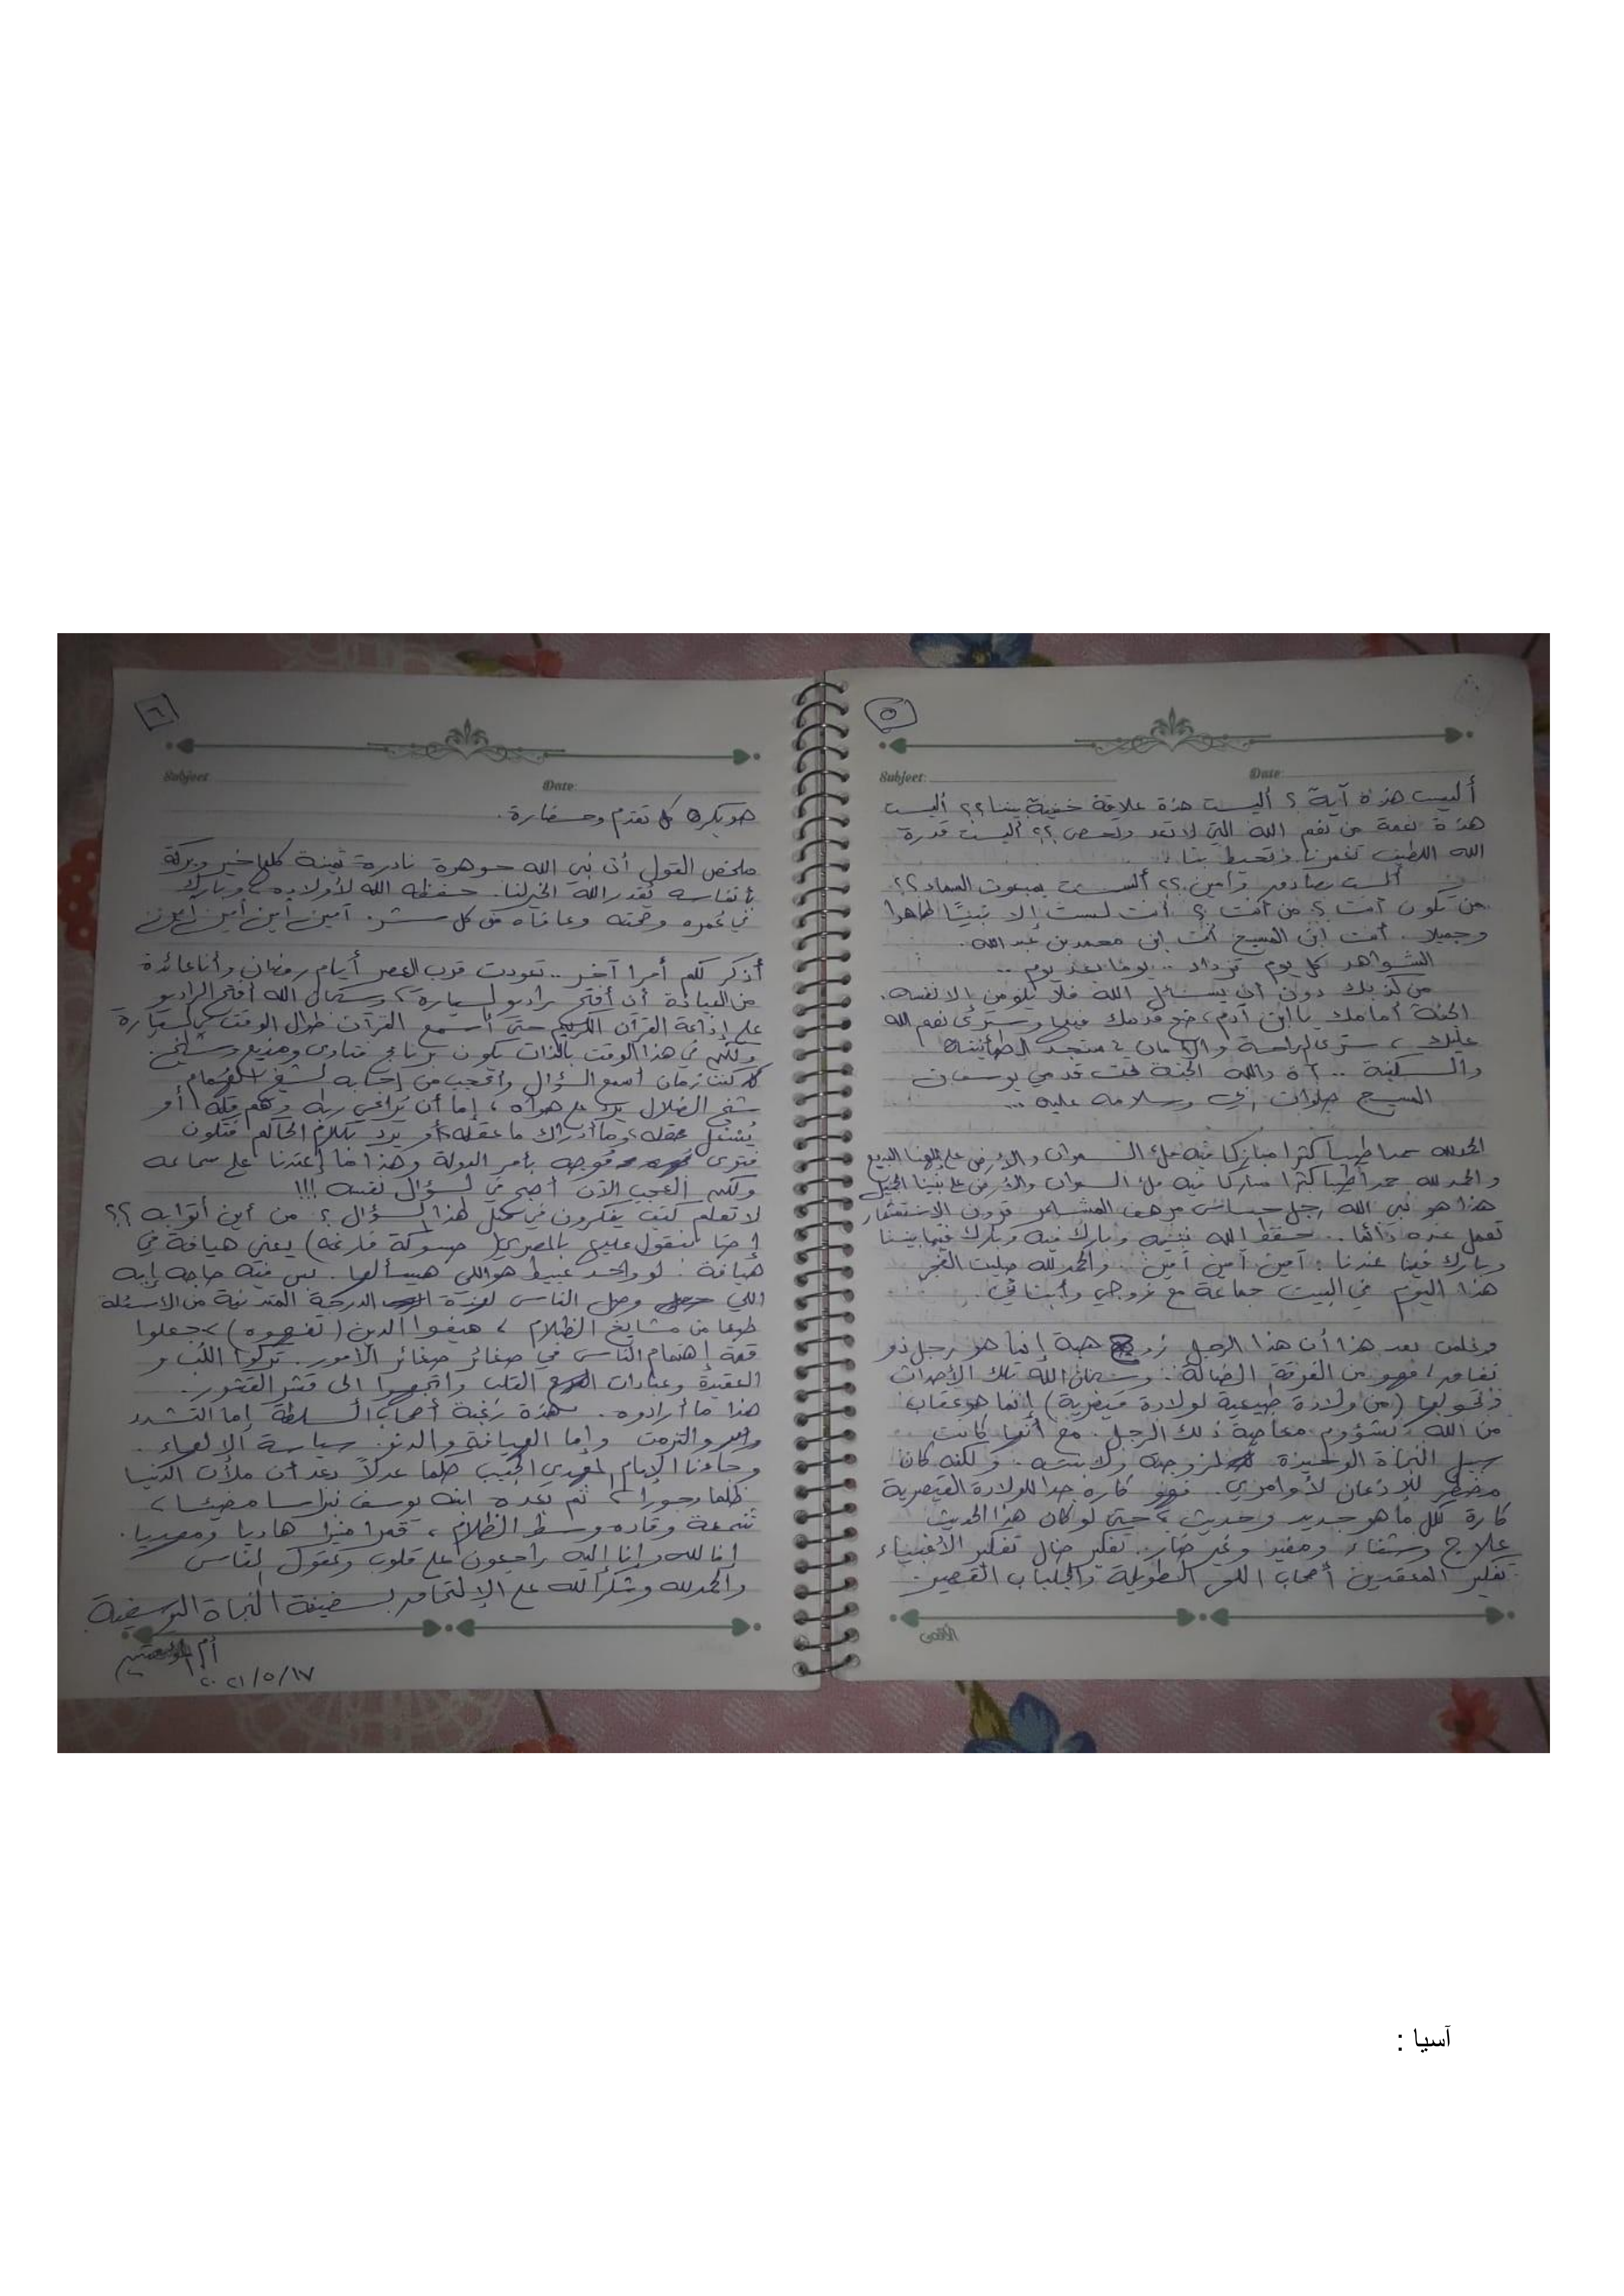 ٥
Subject:
Date:
أليست هذه آية ؟ أليست هذه علاقة خفية بيننا ؟؟ أليست
هذه نعمة من نعم الله التي لا تعد ولا تحصى ؟؟ أليست قدرة
الله اللطيف تغمرنا وتحيط بنا
ألست بصادق وأمين ؟؟ ألست بمبعوث السماء ؟؟
من تكون أنت ؟ من أنت ؟ أنت لست إلا نبيًا طاهرا
وجميلا . أنت ابن المسيح أنت ابن محمد بن عبد الله .
الشواهد كل يوم تزداد .. يوما بعد يوم ..
من كذبك دون أن يسائل الله فلا يلومن إلا نفسه .
الجنة أمامك يا ابن آدم ، ضع قدمك فيها وسترى نعم الله
عليك ، سترى الراحة والأمان ، ستجد الطمأنينة
والسكينة .. آه والله الجنة تحت قدمي يوسف بن
المسيح صلوات ربي وسلامه عليه ...
الحمد لله حمدا طيبا كثيرا مباركا فيه ملئ السموات والأرض على إلهنا البديع
والحمد لله حمدا طيبا كثيرا مباركا فيه ملئ السموات والأرض على نبينا الجميل
هذا هو نبي الله رجل حساس مرهف المشاعر قرون الاستشعار
تعمل عنده دائما .. حفظ الله نبيه وبارك فيه وبارك فيما بيننا
وبارك فينا عندنا : آمين آمين آمين . والحمد لله صليت الفجر
هذا اليوم في البيت جماعة مع زوجي وأبنائي .
بعد هذا أن هذا الرجل زوج هبة إنما هو رجل ذو
نفاق فهو من الفرقة الضالة . وسبحان الله تلك الأحداث
وتحولها (من ولادة طبيعية لولادة قيصرية) إنما هو عقاب
من الله لشؤم معاصية ذلك الرجل . مع أنها كانت
سبيل النجاة الوحيدة لزوجته ولابنته . ولكنه كان
مضطر للإذعان لأوامري . فهو كاره جدا للولادة القيصرية
كاره لكل ما هو جديد وحديث ، حتى لو كان هذا الحديث
علاج وشفاء ومفيد وغير ضار . تفكير ضال تفكير الأغبياء
تفكير المعقدين أصحاب اللحى الطويلة والجلباب القصير .
الأقصى
٦
Subject:
Date:
هو يكره كل تقدم وحضارة .
ملخص القول أن نبي الله جوهرة نادرة ثمينة كلها خير وبركة
بأنفاسه يقدر الله الخير لنا . حفظه الله لأولاده وبارك
في عمره وصحته وعافاه من كل شر . آمين آمين آمين آمين
أذكر لكم أمرا آخر .. تعودت قرب العصر أيام رمضان وأنا عائدة
من العيادة أن أفتح راديو السيارة ، وسبحان الله أفتح الراديو
على إذاعة القرآن الكريم حتى أسمع القرآن طوال الوقت في السيارة
ولكن في هذا الوقت بالذات يكون برنامج فتاوى ومذيع وشيخ .
كنت زمان أسمع السؤال وأتعجب من إجابة الشيخ
شيخ الضلال يرد على هواه ، إما أن يراعي ربه وهم قلة أو
يُشغل عقله وما أدراك ما عقله أو يرد بكلام الحاكم فتكون
فتوى موجهة بأمر الدولة وهذا ما إعتدنا على سماعه
ولكن العجب الآن أصبح في السؤال نفسه !!!
لا تعلم كيف يفكرون في مثل هذا السؤال ؟ من أين أتوا به ؟؟
إحنا بنقول عليها بالمصري ( فارغه) يعني هيافة في
هيافة . لو واحد عبيط هو اللي هيسألها . بس فيه حاجه إيه
اللي وصل الناس لهذه الدرجة المتدنية من الأسئلة
طبعا من مشايخ الظلام ، هيفوا الدين (تفهوه) ، جعلوا
قمة إهتمام الناس في صغائر صغائر الأمور . تركوا اللب و
العقيدة وعبادات القلب واتجهوا الى قشر القشور .
هذا ما أرادوه . هذه رغبة أصحاب السلطة إما التشدد
والتزمت وإما الهيافة والدنو . سياسة الإلهاء .
وجاءنا الإمام المهدي الحبيب حكما عدلاً بعد أن ملأت الدنيا
ظلما وجورا ، ثم بعده ابنه يوسف نبراسا مضيئا ،
شمعة وقاده وسط الظلام ، قمرا منيرا هاديا ومهديا .
إنا لله وإنا إليه راجعون على قلوب وعقول الناس
والحمد لله وشكرا لله على الإلتحاق بسفينة النجاة اليوسفية
أم المؤمنين
٢٠٢١/٥/١٧
آسيا :